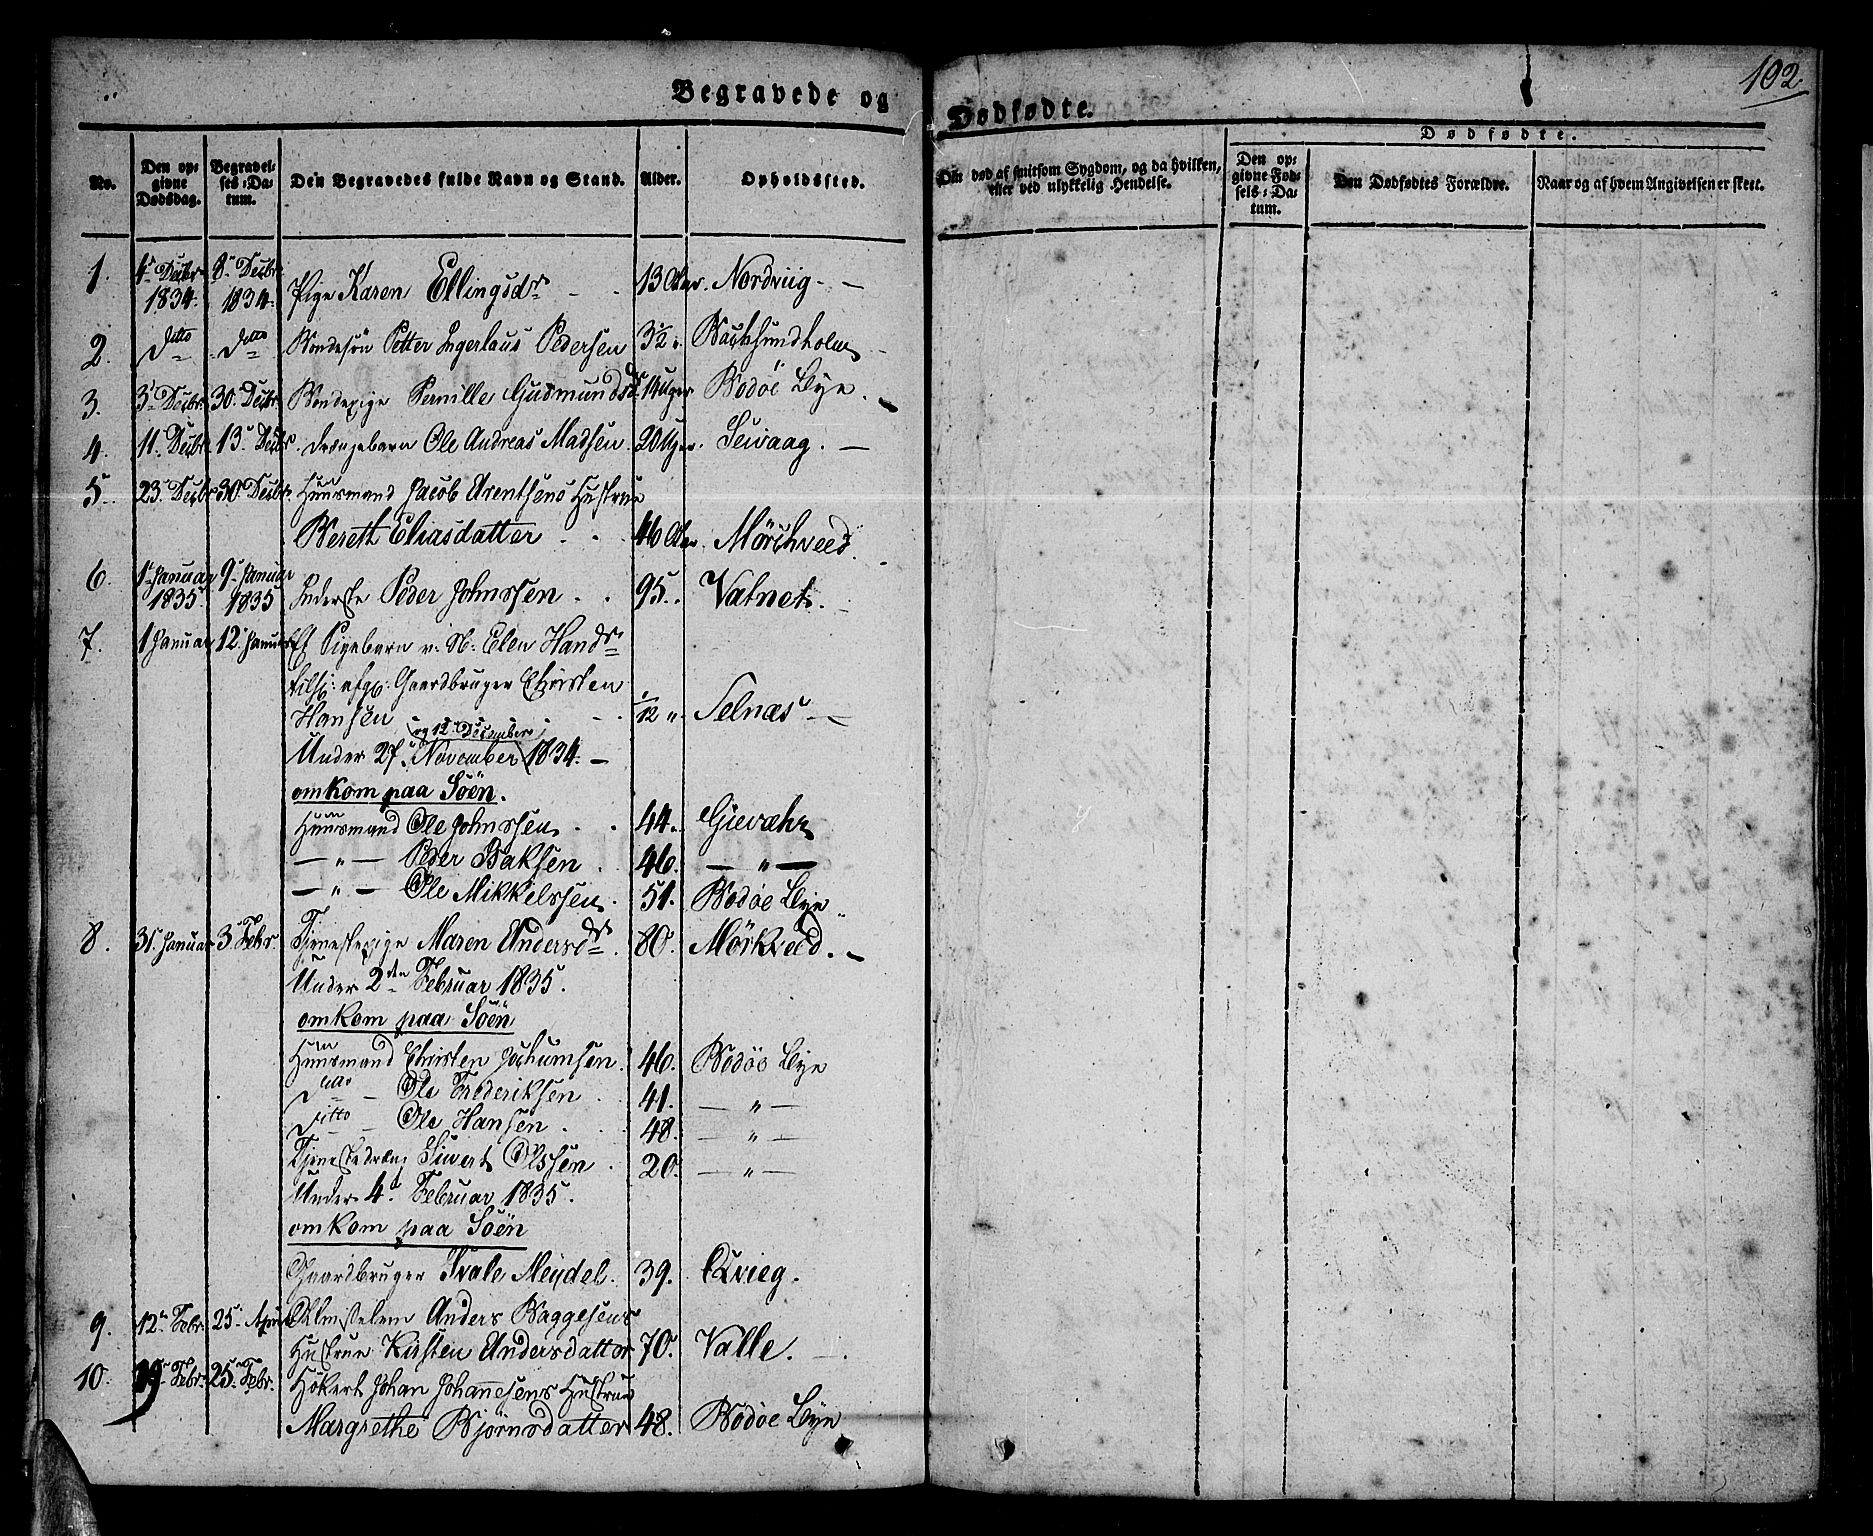 102.
Begravede og Dødfødte.
Dødfødte.
No. Den opgivne Dødsdag. Begravelses-Datum. Den Begravedes fulde Navn og Stand. Alder. Opholdssted. Om død af smitsom Sygdom, og da hvilken, eller ved ulykkelig Hendelse. Den opgivne Fødsels-Datum. Den Dødfødtes Forældre. Naar og af hvem Angivelsen er skeet.
1. 4de Decbr 1834. 8de Decbr 1834. Pige Karen Ellingsdr 13 Aar. Nordviig.
2. Ditto Ditto Bondesøn Petter Ingerlaus Pedersen 3½. Backsundholm
3. 3. Decbr. 30. Decbr. Bondepige Pernille Gudmundsdr 14 Uger Bodøe Bye.
4. 11. Decbr. 13. Decbr. Drængebarn Ole Andreas Madsen 20 Uger. Seivaag.
5. 23. Decbr 30. Decbr. Huusmand Jacob Arentsens Hustrue
Bereth Eliasdatter 46 Aar. Mörchveed.
6. 1. Januar 1835. 9. Januar 1835 Inderste Peder Johnssen 95. Vatnet.
7. 1 Januar 12. Januar Et Pigebarn v. N. Elen Handr
tilh: afg: Gaardbruger Christen
Hansen 1/12 " Selnæs
og 12. December
Under 27. November 1834.
omkom paa Söen.
Huusmand Ole Johnssen. 44. Gievæhr
— " — Peder Isaksen. 46. — " —
— " — Ole Mikkelssen. 51. Bodøe Bye
8. 31. Januar 3. Febr. Tjenestepige Maren Andersdr 80. Mørkved.
Under 2den Februar 1835.
omkom paa Söen
Huusmand Christen Jochumsen. 46. Bodöe Bye
Ditto — Ole Frederiksen. 41. — " —
Ditto — Ole Hansen. 48. — " —
Tjenestedræng Siwert Olssen. 20. — " —
Under 4. Februar 1835.
omkom paa Söen
Gaardbruger Ivale Meydel. 39. Qvieg.
9. 12. Febr. 25. April Almisselem Anders Baggesens
Hustrue Kirsten Andersdatter 70. Valle.
10. 19. Febr. 25. Febr. Høkert Johan Johannesens Hustrue
Margrethe Bjørnsdatter 48. Bodöe Bye